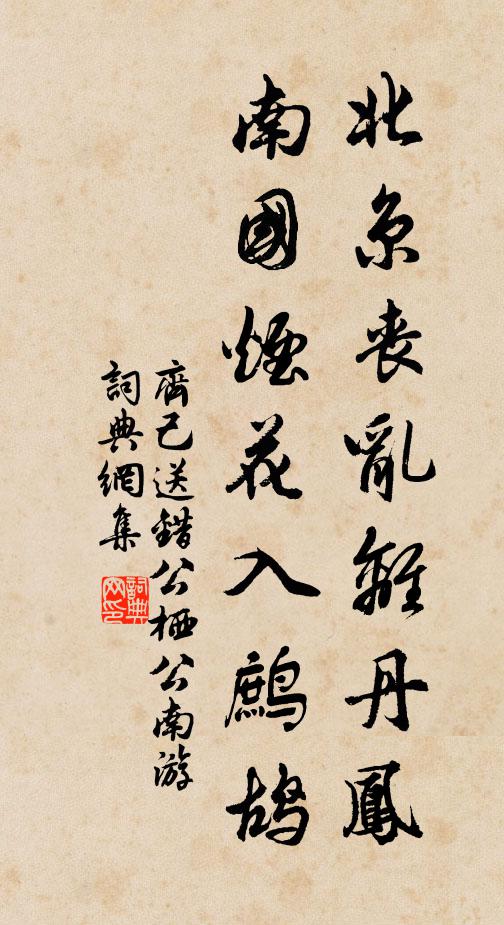 北京喪亂離丹鳳
南國煙花入鷓鴣
齊己送錯公栖公南游
詞典網集
詞典网印